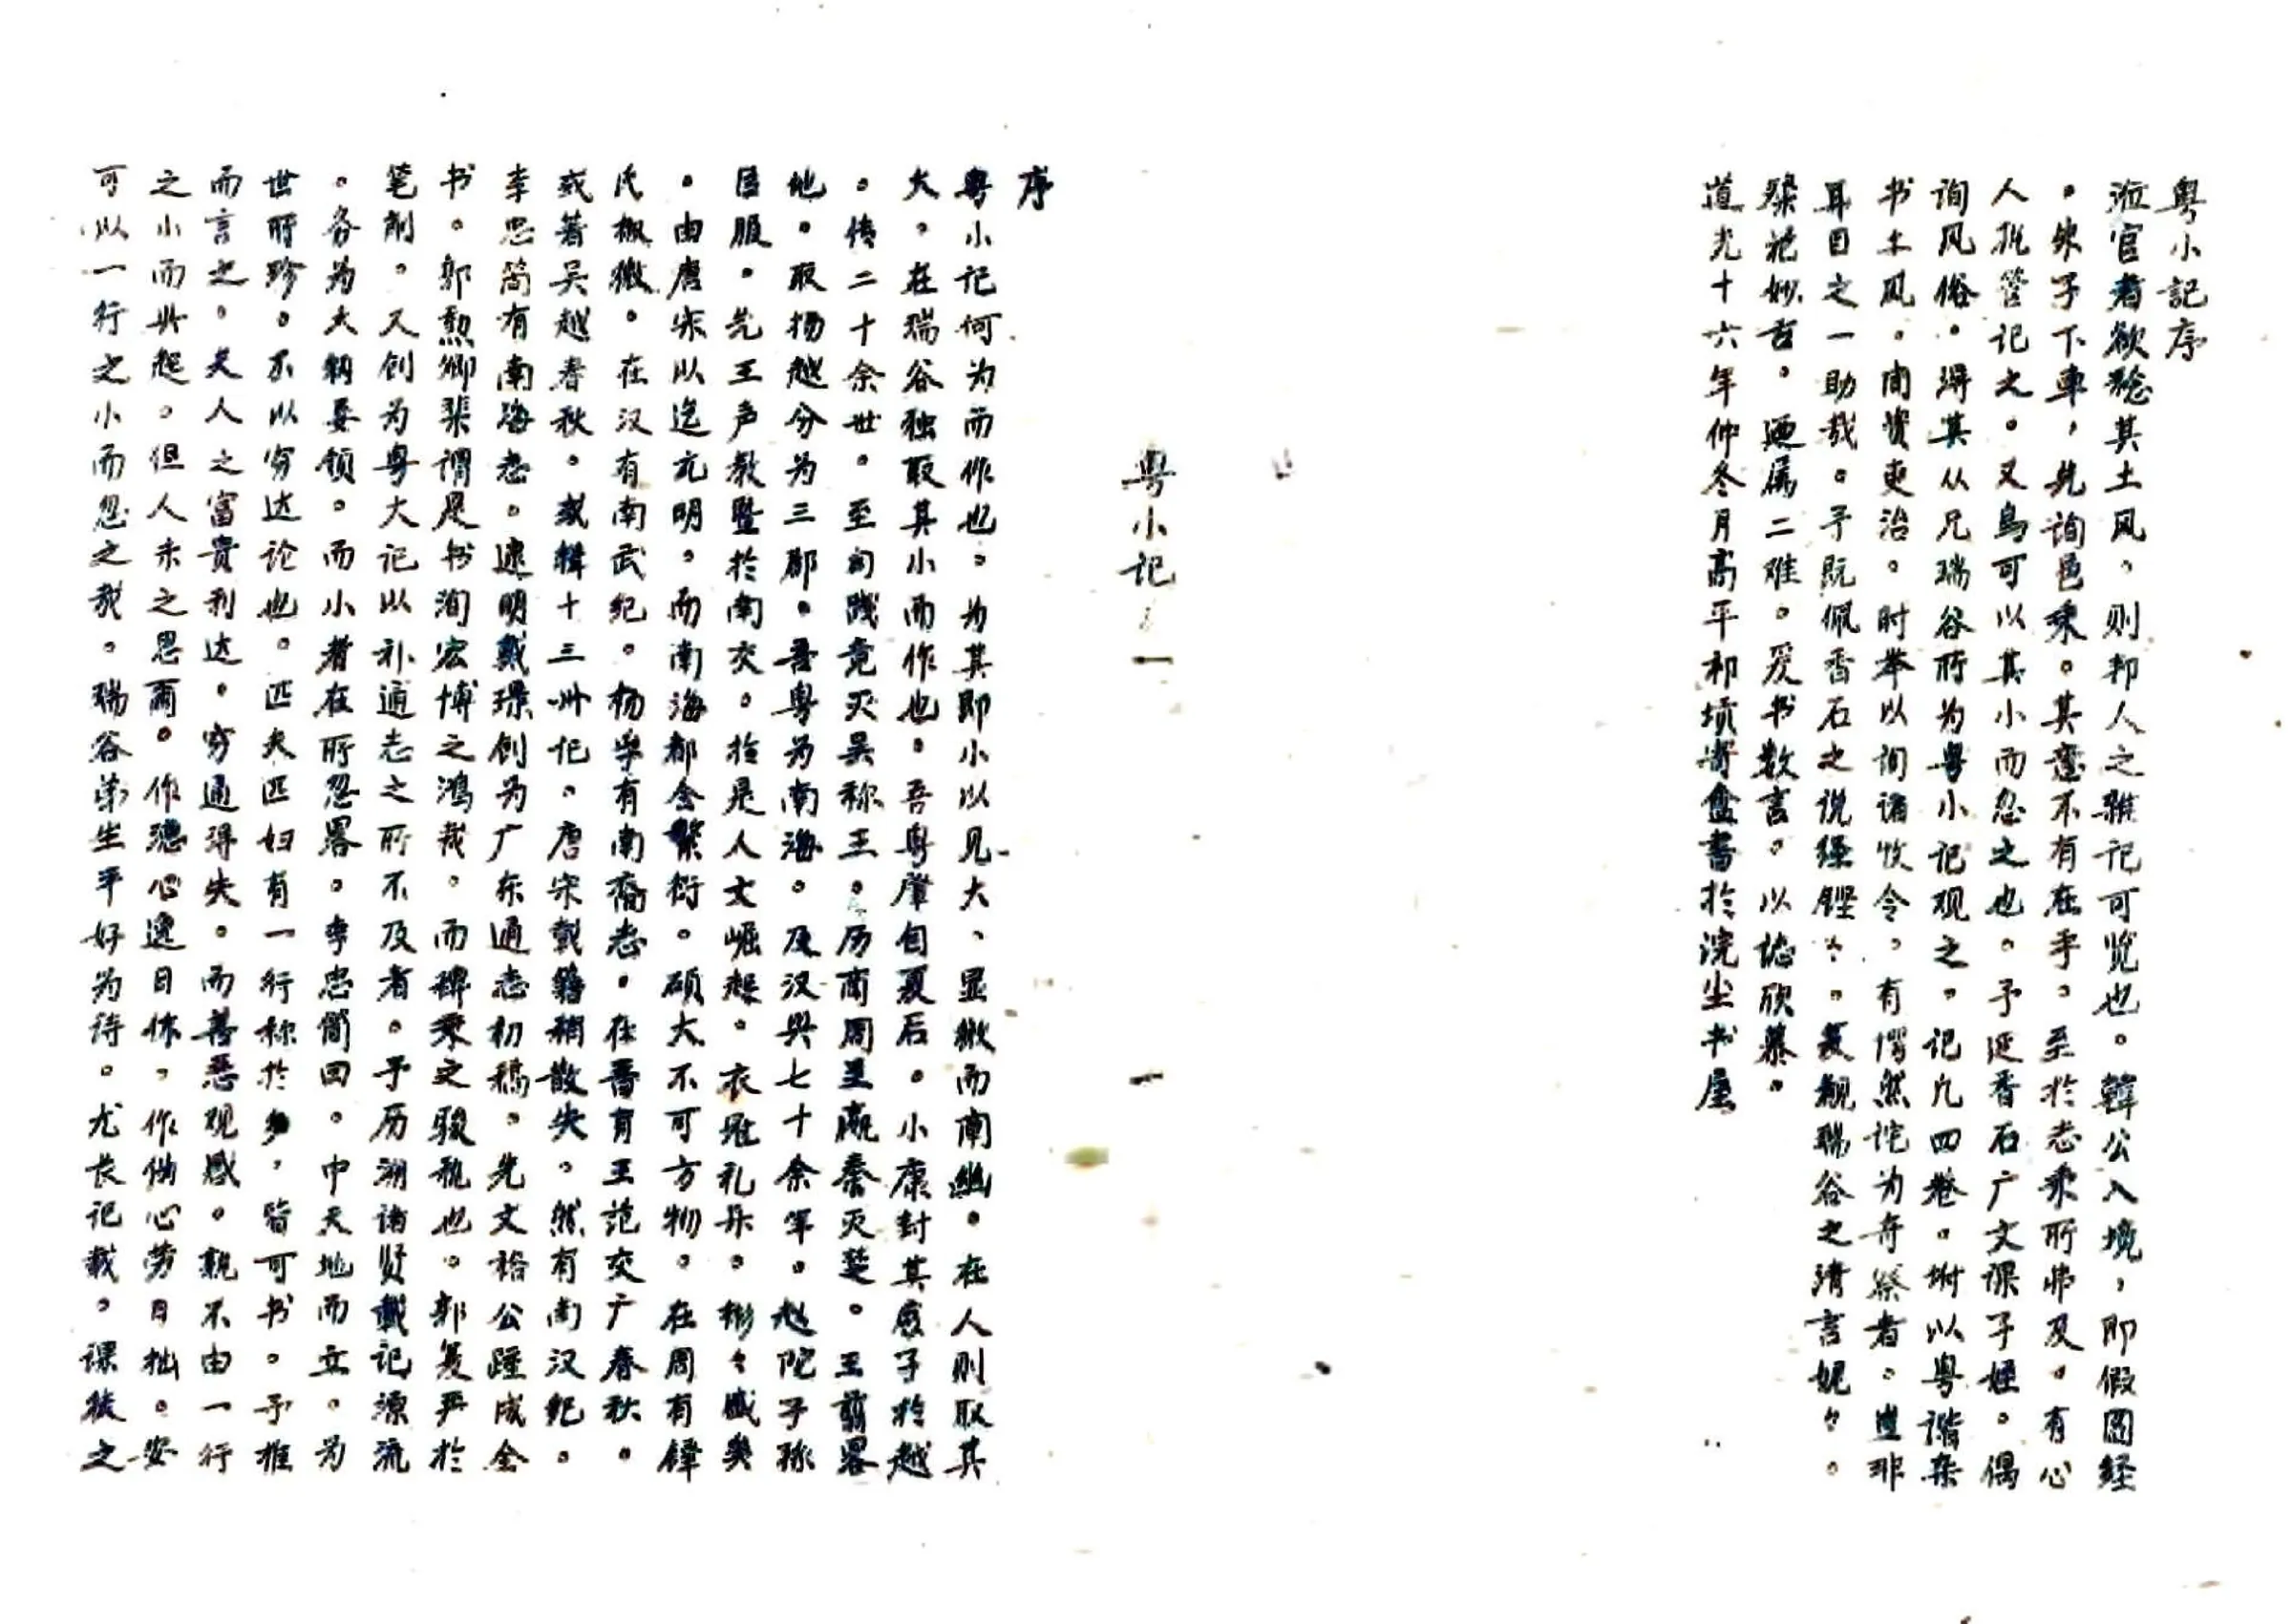 粤小記序
涖官者欲稔其土风，则邦人之雜记可览也。韓公入境，即假圖经
。朱子下車，先询邑乘。其意不有在乎。至於志乘所弗及。有心
人抚管记之。又烏可以其小而忽之也。予延香石广文课子姪。偶
询风俗。得其从兄瑞谷所为粤小记观之。记凡四卷。坿以粤谐杂
书土风。间贊吏治。时举以询诸牧令。有愕然诧为奇祭者。豈非
耳目之一助哉。予既佩香石之说經鏗々。复觏瑞谷之清言妮々。
粲花妙舌。迺属二难。爰书数言。以誌欣慕。
道光十六年仲冬月高平祁墳寄盦書於浣尘书屋
粤小记
一
序
粤小记何为而作也。为其即小以见大、显微而阐幽。在人则取其
大。在瑞谷独取其小而作也。吾粤肇自夏后。小康封其庶子於越
。传二十余世。至勾践竟灭吴称王。历商周至嬴秦灭楚。王翦畧
地。取扬越分为三郡。吾粤为南海。及汉興七十余年。赵陀子孫
臣服。先王声教暨於南交。於是人文崛起。衣冠礼乐。彬々盛矣
。由唐宋以迄元明。而南海都会繁衍。硕大不可方物。在周有鐸
氏椒微。在汉有南武纪。杨孚有南裔志。在晋有王范交广春秋。
或著吴越春秋。或輯十三州记。唐宋載籍稍散失。然有南汉纪。
李忠简有南海志。逮明戴璟創为广东通志初稿。先文裕公踵成全
书。郭勲卿棐谓是书洵宏博之鸿裁。而稗乘之骏軌也。郭复严於
笔削。又创为粤大记以补通志之所不及者。予历溯诸贤載记源流
。各为大綱要领。而小者在所忽畧。李忠简曰。中天地而立。为
世所珍。不以穷达论也。匹夫匹妇有一行称於乡，皆可书。予推
而言之。夫人之富貴利达。穷通得失。而善恶观感。親不由一行
之小而興起。但人未之思爾。作德心逸日休，作偽心劳日拙。安
可以一行之小而忽之哉。瑞谷弟生平好为诗。尤長记载。课徒之